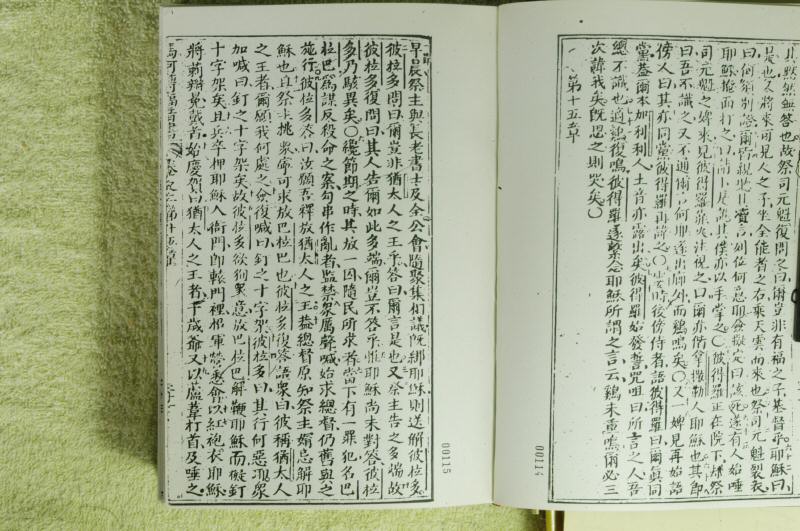 其默然無答也故祭司元魁復問之曰爾豈非有福之子基督乎耶穌曰
是也又將來可見人之子坐全能者之右乘天雲而來也祭司元魁裂衣
曰何須別證爾皆親聽其瀆言列位何意耶僉擬定曰該死遂有人始唾
耶穌掩面打之曰請卜是誰其僕亦以手掌之〇彼得羅正在院下燐祭
司元魁之婢來見彼得羅炙火注視之曰爾亦偕拿撒勒人耶穌也其即
曰吾不識之又不通爾言何即遂出廊外而鷄鳴矣〇又一婢見再始語
傍人曰其亦同黨彼得羅再諱之〇少時後傍侍者語彼得羅曰爾真同
黨蓋爾本加利利人土音亦露出矣彼得羅始發誓咒咀曰所言之人吾
總不識也適鷄復鳴彼得羅遂繫念耶穌所謂之言云鷄未重鳴爾必三
次諱我矣既思之則哭矣〇
第十五章
00114
早晨祭主與長老書士及全公會隨聚集相議既綁耶穌則送解彼拉多
彼拉多問曰爾豈非猶太人之王乎答曰爾言是也又祭主告之多端故
彼拉多復問曰其人告爾如此多端爾豈不答乎惟耶穌尚未對答彼拉
多乃駭異矣〇當節期之時其放一囚隨民所求者當下有一罪犯名巴
拉巴爲謀反殺命之案句串作亂者監禁衆厲聲喊始求總督仍舊與之
施行彼拉多答曰汝願吾釋放猶太人之王蓋總督原知祭主媢忌解耶
穌也且祭主挑衆寧可求放巴拉巴也彼拉多復答語衆曰彼稱猶太人
之王者爾願我何處之僉復喊曰釘之十字架彼拉多曰其行何惡耶衆
加喊曰釘之十字架矣故彼拉多欲徇衆意放巴拉巴解鞭耶穌而礙釘
十字架矣且兵卒押耶穌入衙門即轅門裡招軍營悉會以紅袍衣耶穌
將莿辮冕戴首始慶賀曰猶太人之王者千歲爺又以蘆葦打首及唾之
00115